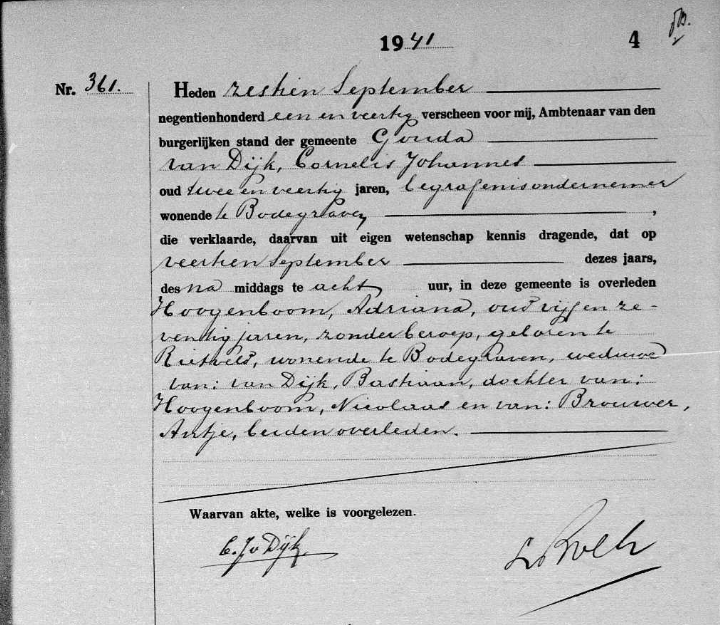 1941 4
Nr. 361.
Heden zestien September
negentienhonderd een en veertig verscheen voor mij, Ambtenaar van den
burgerlijken stand der gemeente Gouda
van Dijk, Cornelis Johannes
oud twee en veertig jaren, begrafenisondernemer
wonende te Bodegraven,
die verklaarde, daarvan uit eigen wetenschap kennis dragende, dat op
veertien September dezes jaars,
des na middags te acht uur, in deze gemeente is overleden
Hoogenboom, Adriana, oud vijf en ze-
ventig jaren, zonder beroep, geboren te
Rietveld, wonende te Bodegraven, weduwe
van: van Dijk, Bastiaan, dochter van:
Hoogenboom, Nicolaas en van: Brouwer,
Antje, beiden overleden.
Waarvan akte, welke is voorgelezen.
C. J. v Dijk